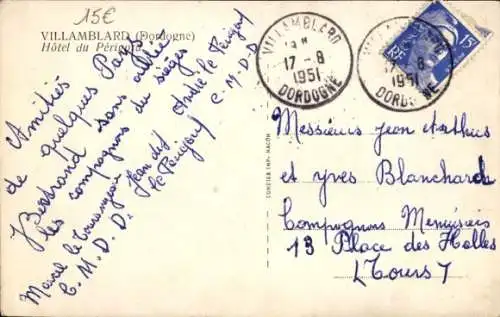 15€
VILLAMBLARD (Dordogne)
Hôtel du Périgord
Amitiés
de quelques Pays
Bertrand sans oublier
les compagnons du siège
Marcel le Tourangeau
C.M.D.D.
Jean dit
le Périgord
André le Périgord
C.M.D.D
COMBIER IMP. MACON
VILLAMBLARD
17-8
1951
DORDOGNE
17-8
1951
DORDOGNE
15F
RF
Messieurs Jean Arthus
et Yves Blanchard
Compagnons Menuisiers
13 Place des Halles
(Tours)